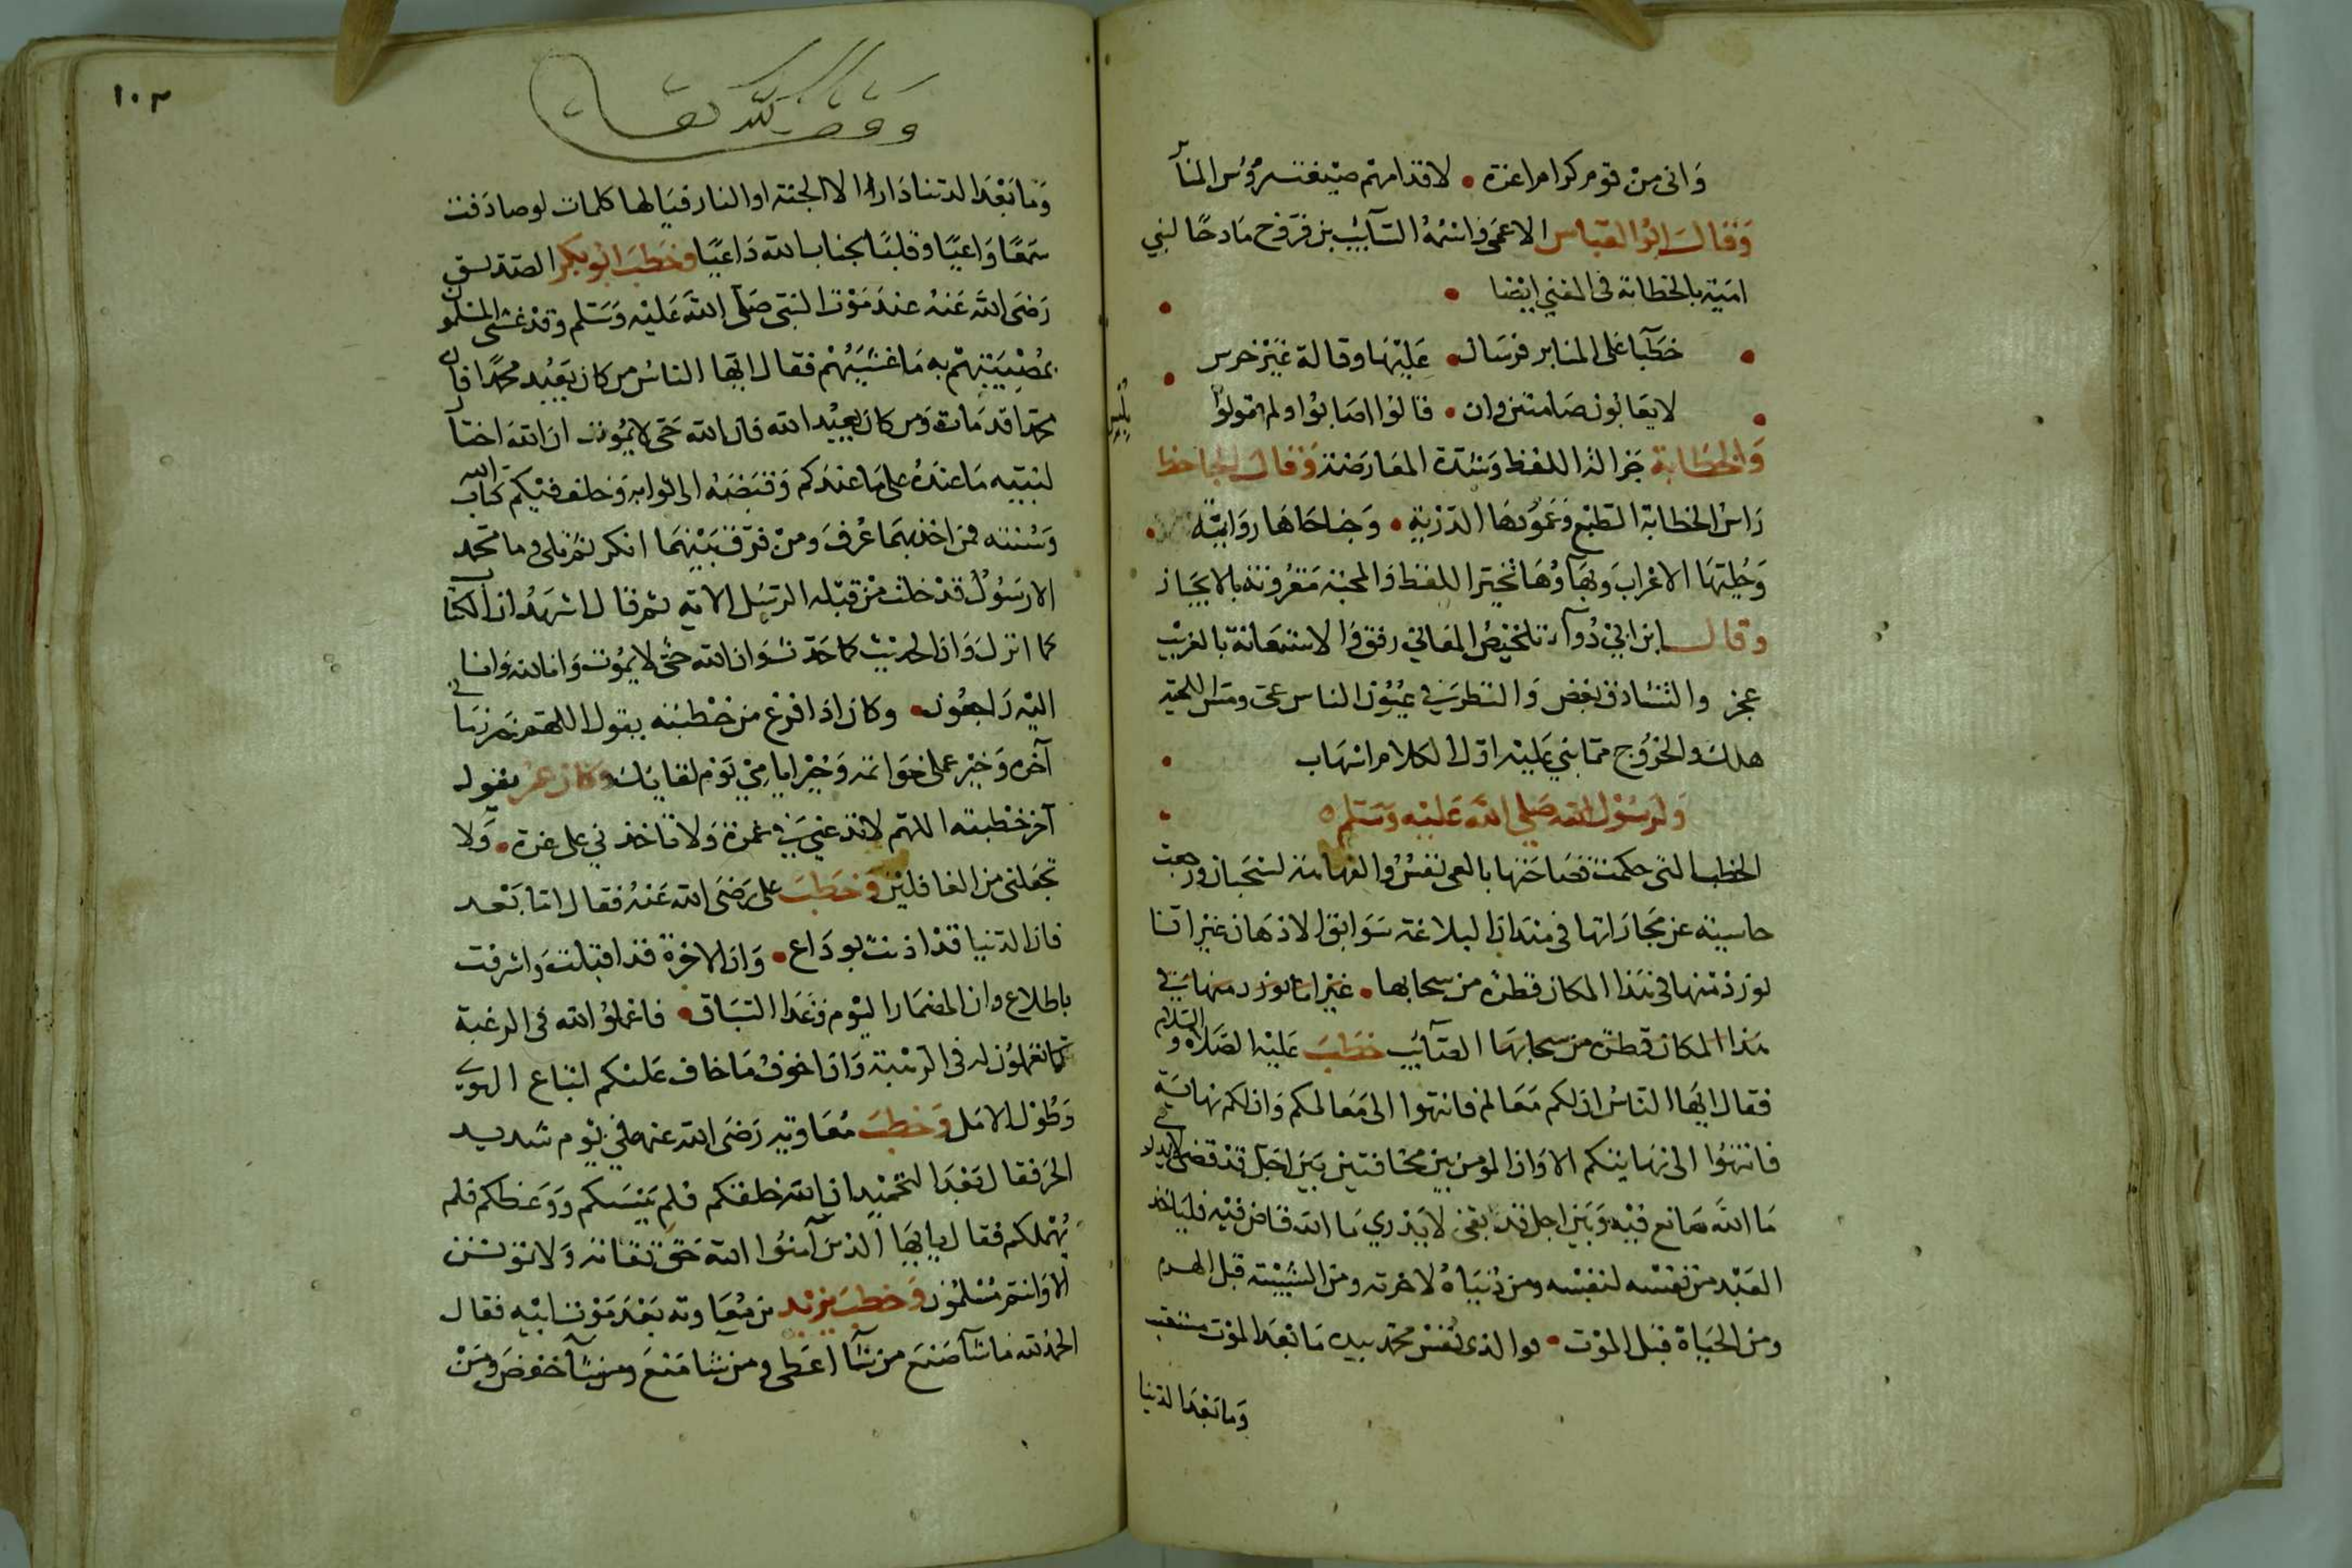 وانى من قوم كرام اعزة • لاقدامهم صيغت رؤس المنا
وقال ابو العباس الاعمى واسمه السآئب بن فروخ مادحا لبني
امية بالخطابة فى المغني ايضا
خطبا على المنابر فرسان • عليها وقالة غير خرس
لايعابون صامتين وان • قالوا اصابوا ولم يقولوا
بلبس
والخطابة جزالة اللفظ وشدة المعارضة وقال الجاحظ
راس الخطابة الطبع وعمودها الدربة • وجناحاها رواية
وحليتها الاعراب وبهآوها تخير اللفظ والمحبة مقرونة بالايجاز
وقال ابن ابي دوآد تلخيص المعاني رفق والاستعانة بالغريب
عجز والتشادق بغض والنظر في عيون الناس عى ومس اللحية
هلك والخروج مما بني عليه اول الكلام اسهاب
ولرسول الله صلى الله عليه وسلم
الخطب التى حكمت فصاحتها بالعى لقس والفهاهة لسحبان ورجعت
حاسبة عن مجاراتها فى ميدان البلاغة سوابق الاذهان غير انا
نورد منها فى هذا المكان قطرة من سحابها • غير انا نورد منها في
هذا المكان قطرة من سحابها الصآئب خطب عليه الصلاة والسلام
فقال ايها الناس ان لكم معالم فانتهوا الى معالمكم وان لكم نهاية
فانتهوا الى نهايتكم الا وان المؤمن بين مخافتين بين اجل قد قضى لايدري
ما الله صانع فيه وبين اجل قد بقى لا يدري ما الله قاض فيه فلياخذ
العبد من نفسه لنفسه ومن دنياه لاخرته ومن الشبيبة قبل الهرم
ومن الحياة قبل الموت • فوالذى نفس محمد بيده ما بعد الموت مستعتب
وما بعد الدنيا
١٠٣
وقف لله تعالى
وما بعد الدنيا دارا الا الجنة او النار فيا لها كلمات لو صادفت
سمعا واعيا وقلبا لجناب الله داعيا وخطب ابو بكر الصديق
رضى الله عنه عند موت النبى صلى الله عليه وسلم وقد غشى المسلمون
بمصيبتهم به ما غشيهم فقال ايها الناس من كان يعبد محمدا فان
محمدا قد مات ومن كان يعبد الله فان الله حى لا يموت ان الله اختار
لنبيه ما عنده على ما عندكم وقبضه الى ثوابه وخلف فيكم كتاب الله
وسنته فمن اخذ بهما عرف ومن فرق بينهما انكر ثم تلى وما محمد
الا رسول قد خلت من قبله الرسل الاية ثم قال اشهد ان الكتاب
كما انزل وان الحديث كما حدث وان الله حى لا يموت وانا لله وانا
اليه راجعون • وكان اذا فرغ من خطبته يقول اللهم خير زماني
آخره وخير عملى خواتمه وخير ايامي يوم لقايك وكان عمر يقول
آخر خطبته اللهم لاتدعني في غمرة ولا تاخذني على غرة • ولا
تجعلنى من الغافلين وخطب على رضى الله عنه فقال اما بعد
فان الدنيا قد اذنت بوداع • وان الاخرة قد اقبلت واشرفت
باطلاع وان المضمار اليوم وغدا السباق • فاعملوا لله فى الرغبة
كما تعملون له فى الرهبة وان اخوف ما اخاف عليكم اتباع الهوى
وطول الامل وخطب معاوية رضى الله عنه في يوم شديد
الحر فقال بعد التحميد ان الله خلقكم فلم ينسكم ووعظكم فلم
يهملكم فقال يا ايها الذين آمنوا اتقوا الله حق تقاته ولا تموتن
الا وانتم مسلمون وخطب يزيد بن معاوية بعد موت ابيه فقال
الحمد لله ما شآ صنع من شآ اعطى ومن شا منع ومن شآ خفض ومن